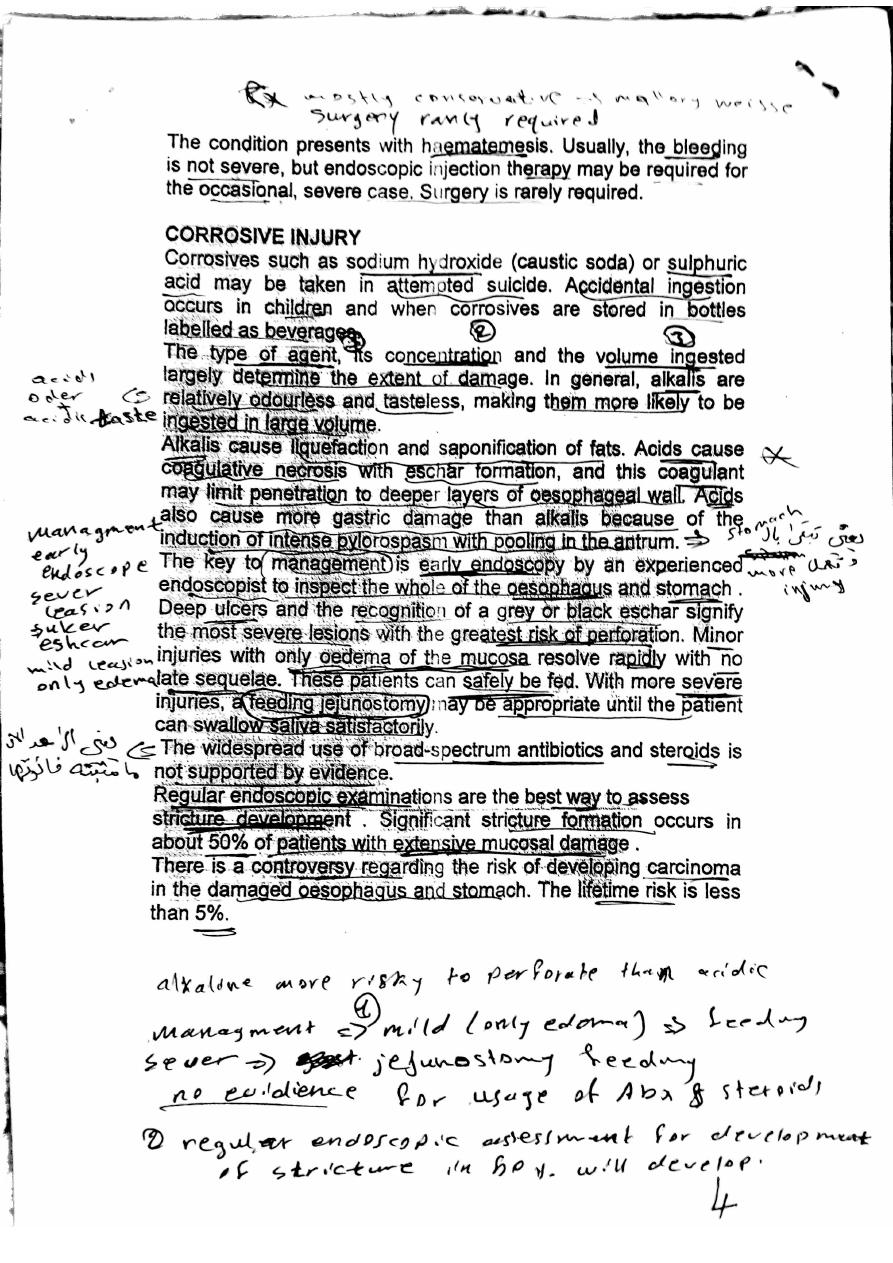 Rx mostly conservative mallory weisse
surgery ranly required
The condition presents with haematemesis. Usually, the bleeding
is not severe, but endoscopic injection therapy may be required for
the occasional, severe case. Surgery is rarely required.
CORROSIVE INJURY
Corrosives such as sodium hydroxide (caustic soda) or sulphuric
acid may be taken in attempted suicide. Accidental ingestion
occurs in children and when corrosives are stored in bottles
labelled as beverages.
① ② ③
The type of agent, its concentration and the volume ingested
largely determine the extent of damage. In general, alkalis are
relatively odourless and tasteless, making them more likely to be
ingested in large volume.
acids
oder
acidic taste
Alkalis cause liquefaction and saponification of fats. Acids cause
coagulative necrosis with eschar formation, and this coagulant
may limit penetration to deeper layers of oesophageal wall. Acids
also cause more gastric damage than alkalis because of the
induction of intense pylorospasm with pooling in the antrum. ⇒
stomach
more
injury
The key to management is early endoscopy by an experienced
endoscopist to inspect the whole of the oesophagus and stomach .
Deep ulcers and the recognition of a grey or black eschar signify
the most severe lesions with the greatest risk of perforation. Minor
injuries with only oedema of the mucosa resolve rapidly with no
late sequelae. These patients can safely be fed. With more severe
injuries, a feeding jejunostomy may be appropriate until the patient
can swallow saliva satisfactorily.
Managment
early
endoscope
sever
leasion
eshcar
mild leasion
only edema
The widespread use of broad-spectrum antibiotics and steroids is
not supported by evidence.
Regular endoscopic examinations are the best way to assess
stricture development . Significant stricture formation occurs in
about 50% of patients with extensive mucosal damage .
There is a controversy regarding the risk of developing carcinoma
in the damaged oesophagus and stomach. The lifetime risk is less
than 5%.
alkaline more risky to perforate than acidic
Managment ⇒ ① mild (only edoma) ⇒ feeding
sever ⇒ jejunostomy feeding
no evidience for usage of Abx & steroids
② regular endoscopic assessment for development
of stricture in 50%. will develop.
4